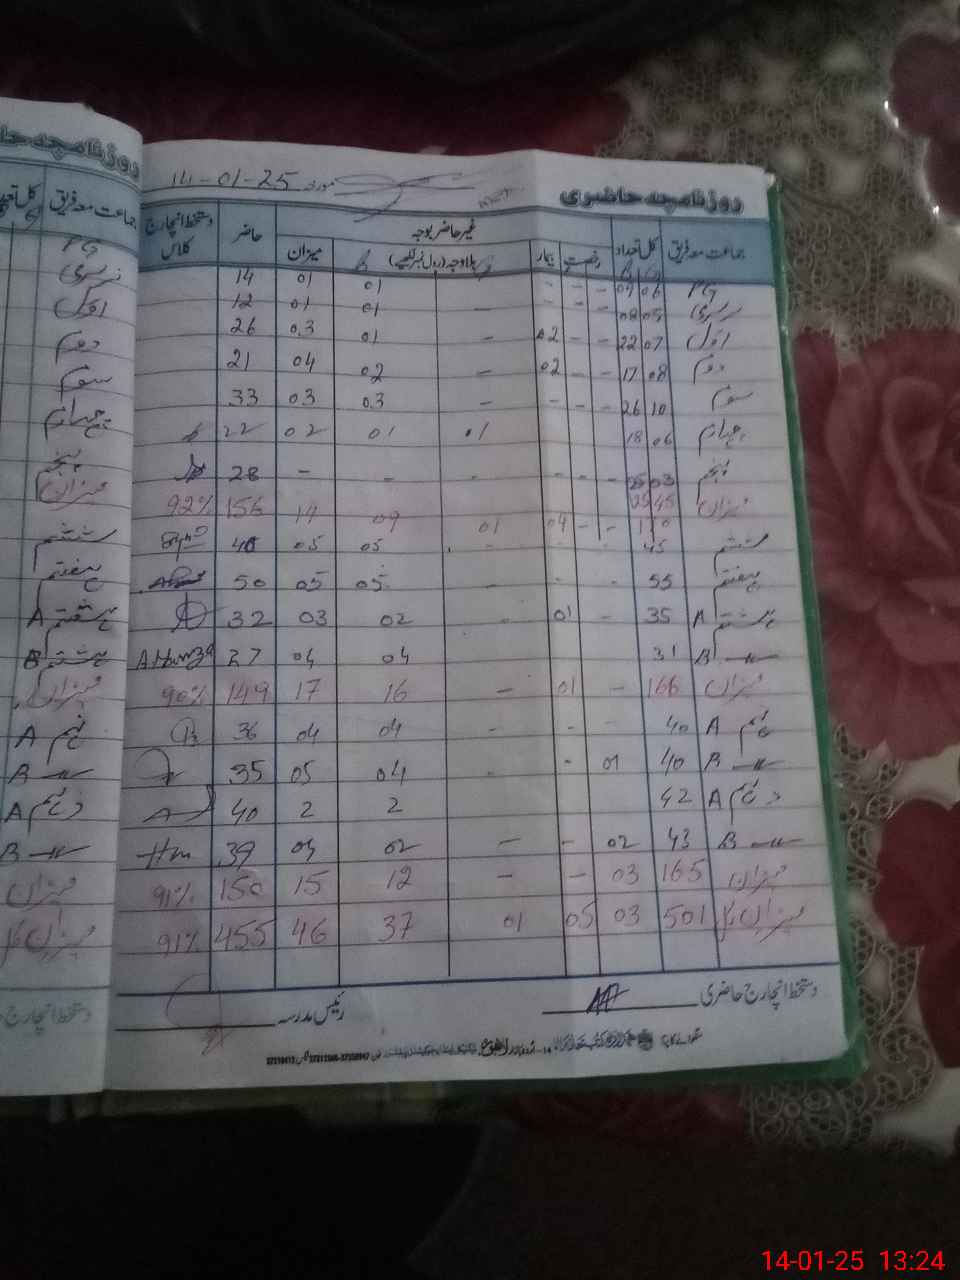 روزنامچہ حاضری مورخہ 14-01-25
جماعت معہ فریق کل تعداد غیر حاضر بوجہ حاضر دستخط انچارج کلاس
رخصت بیمار بلاوجہ (رول نمبر لکھیے) میزان
PG 06 - - - 01 01 14
نرسری 05 08 - - - 01 01 12
اول 07 22 - - 02 - 01 03 26
دوم 08 17 - - 02 - 02 04 21
سوم 10 26 - - - - 03 03 33
چہارم 06 18 01 01 02 22
پنجم 03 25 - - - - - - 28
میزان 45 - - 04 01 09 14 156 92%
ششم 45 - - 05 05 40
ہفتم 55 - - 05 05 50
ہشتم A 35 - 01 - 02 03 32
B 31 04 04 27 A Hamza
میزان 166 - 01 - 16 17 149 90%
نہم A 40 - - - 04 04 36
B 40 01 - - 04 05 35
دہم A 42 2 2 40
B 43 02 - - 02 04 39
میزان 165 03 - - 12 15 150 91%
میزان کل 501 03 05 01 37 46 455 91%
دستخط انچارج حاضری رئیس مدرسہ
روزنامچہ حا
جماعت معہ فریق کل تعداد
PG
نرسری
اول
دوم
سوم
چہارم
پنجم
میزان
ششم
ہفتم
ہشتم A
ہشتم B
میزان
نہم A
B
دہم A
B
میزان
میزان کل
دستخط انچارج
14-01-25 13:24